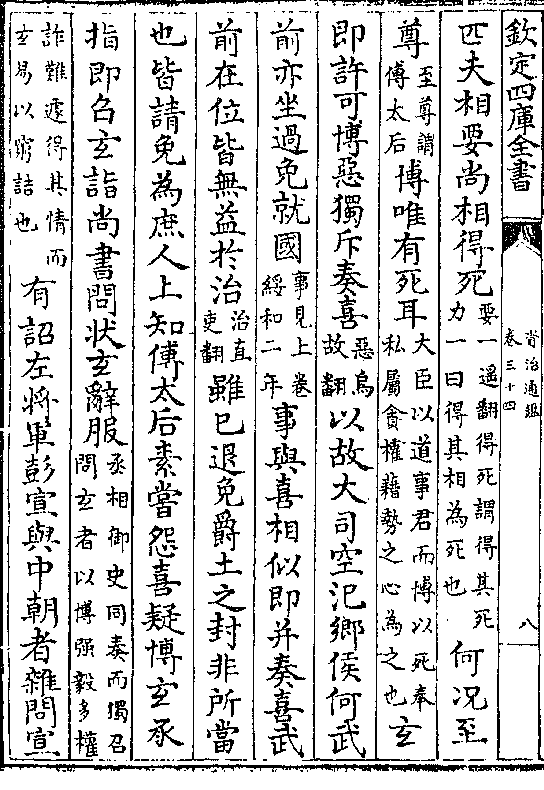 欽定四庫全書
資治通鑑
卷三十四
八
匹夫相要尚相得死要一遥翻得死謂得其死力一曰得其相為死也何况至
尊至尊謂傅太后博唯有死耳大臣以道事君而博以死奉私屬貪權藉勢之心為之也玄
即許可博惡獨斥奏喜惡烏故翻以故大司空汜鄉侯何武
前亦坐過免就國事見上卷綏和二年事與喜相似即并奏喜武
前在位皆無益於治治直吏翻雖已退免爵土之封非所當
也皆請免為庶人上知傅太后素嘗怨喜疑博玄承
指即召玄詣尚書問狀玄辭服丞相御史同奏而獨召問玄者以博强毅多權
詐難遽得其情而玄易以窮詰也有詔左將軍彭宣與中朝者雜問宣